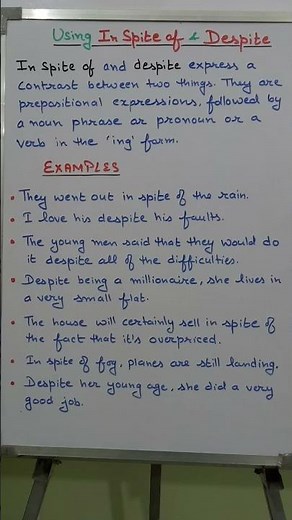 Using In Spite of & Despite
In Spite of and despite express a
contrast between two things. They are
prepositional expressions, followed by
a noun phrase or pronoun or a
verb in the 'ing' form.
EXAMPLES
• They went out in spite of the rain.
• I love his despite his faults.
• The young men said that they would do
it despite all of the difficulties.
• Despite being a millionaire, she lives in
a very small flat.
• The house will certainly sell in spite of
the fact that it's overpriced.
• In spite of fog, planes are still landing.
• Despite her young age, she did a very
good job.